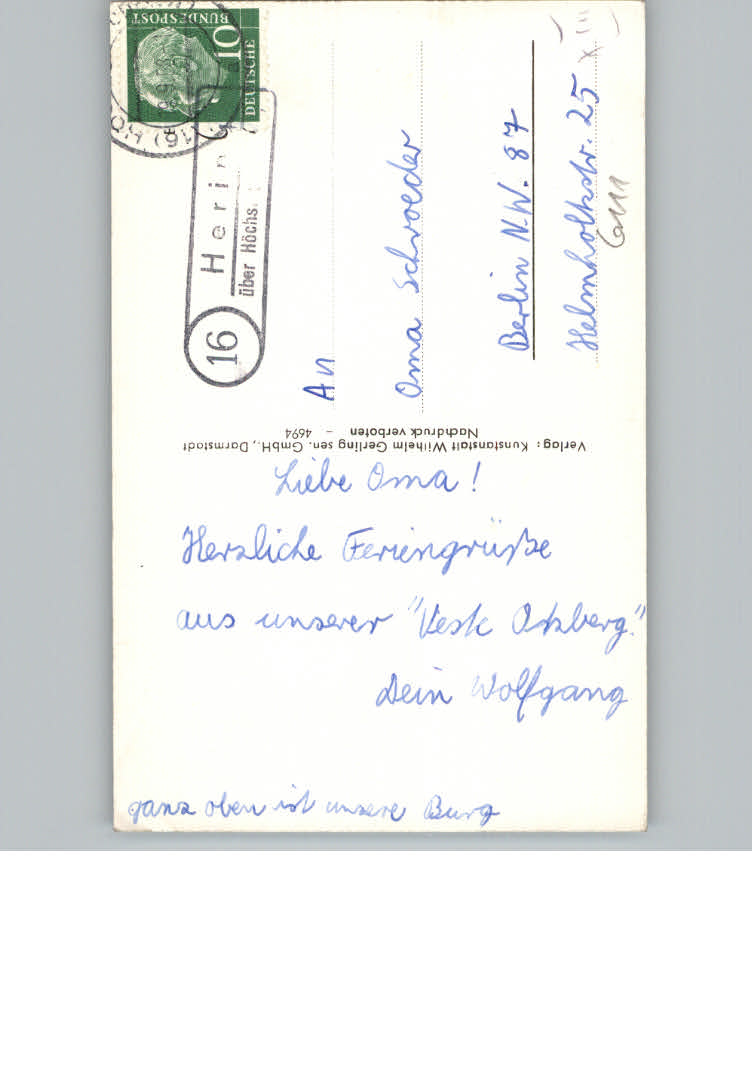 Liebe Oma!
Herzliche Feriengrüße
aus unserer "Veste Otzberg."
Dein Wolfgang
ganz oben ist unsere Burg
Verlag: Kunstanstalt Wilhelm Gerling sen. GmbH., Darmstadt
Nachdruck verboten - 4694
An
Oma Schroeder
Berlin N.W. 87
Helmholtzstr. 25
16
Herin
über Höchs
DEUTSCHE
BUNDESPOST
10
(16)